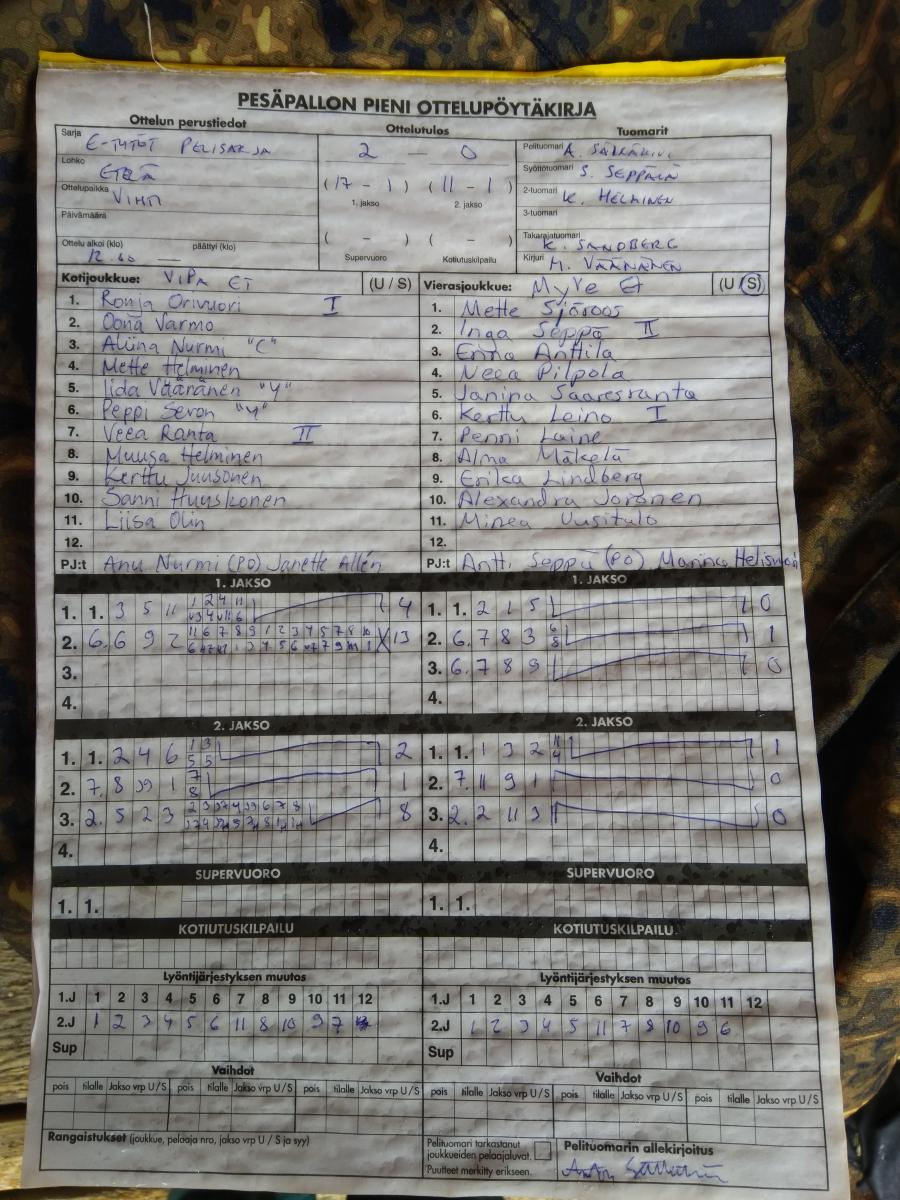 PESÄPALLON PIENI OTTELUPÖYTÄKIRJA
Ottelun perustiedot
Ottelutulos
Tuomarit
Sarja E-TYTÖT PELISARJA
Lohko ETELÄ
Ottelupaikka VIHTI
Päivämäärä
Ottelu alkoi (klo) päättyi (klo)
12.00 —
2 — 0
(17 - 1) (11 - 1)
1. jakso 2. jakso
( - ) ( - )
Supervuoro Kotiutuskilpailu
Pelituomari A.
Syöttötuomari S. SEPPÄLÄ
2-tuomari K. HELMINEN
3-tuomari
Takarajatuomari K. SANDBERG
Kirjuri M. VÄÄNÄNEN
Kotijoukkue: ViPa ET (U / S)
1. Ronja Orivuori I
2. Oona Varmo
3. Aliina Nurmi "C"
4. Mette Helminen
5. Iida Vääränen "Y"
6. Peppi Seron "Y"
7. Veea Ranta II
8. Muusa Helminen
9. Kerttu Juusonen
10. Sanni Huuskonen
11. Liisa Olin
12.
PJ:t Anu Nurmi (PO) Janette Allén
Vierasjoukkue: MyVe ET (U / S)
1. Mette Sjöroos
2. Inga Seppä II
3. Enna Anttila
4. Neea Pilpola
5. Janina Saaresranta
6. Kerttu Leino I
7. Penni Laine
8. Alma Mäkelä
9. Erika Lindberg
10. Alexandra Joronen
11. Minea Uusitalo
12.
PJ:t Antti Seppä (PO) Marina
1. JAKSO
1. 1. 3 5 11 1 2 4 11 4
2. 6. 6 9 2 11 6 7 8 9 1 2 3 4 5 7 8 10 X 13
3.
4.
1. JAKSO
1. 1. 2 1 5 0
2. 6. 7 8 3 6 8 1
3. 6. 7 8 9 0
4.
2. JAKSO
1. 1. 2 4 6 1 3 5 5 2
2. 7. 8 1 7 8 1
3. 2. 5 2 3 8
4.
2. JAKSO
1. 1. 1 3 2 11 4 1
2. 7. 11 9 1 0
3. 2. 2 11 3 0
4.
SUPERVUORO
1. 1.
SUPERVUORO
1. 1.
KOTIUTUSKILPAILU
KOTIUTUSKILPAILU
Lyöntijärjestyksen muutos
1.J 1 2 3 4 5 6 7 8 9 10 11 12
2.J 1 2 3 4 5 6 11 8 10 9 7
Sup
Lyöntijärjestyksen muutos
1.J 1 2 3 4 5 6 7 8 9 10 11 12
2.J 1 2 3 4 5 11 7 8 10 9 6
Sup
Vaihdot
pois tilalle Jakso vrp U / S pois tilalle Jakso vrp U / S pois tilalle Jakso vrp U / S
Vaihdot
pois tilalle Jakso vrp U / S pois tilalle Jakso vrp U / S pois tilalle Jakso vrp U / S
Rangaistukset (joukkue, pelaaja nro, jakso vrp U / S ja syy)
Pelituomari tarkastanut
joukkueiden pelaajaluvat.
Puutteet merkitty erikseen.
Pelituomarin allekirjoitus